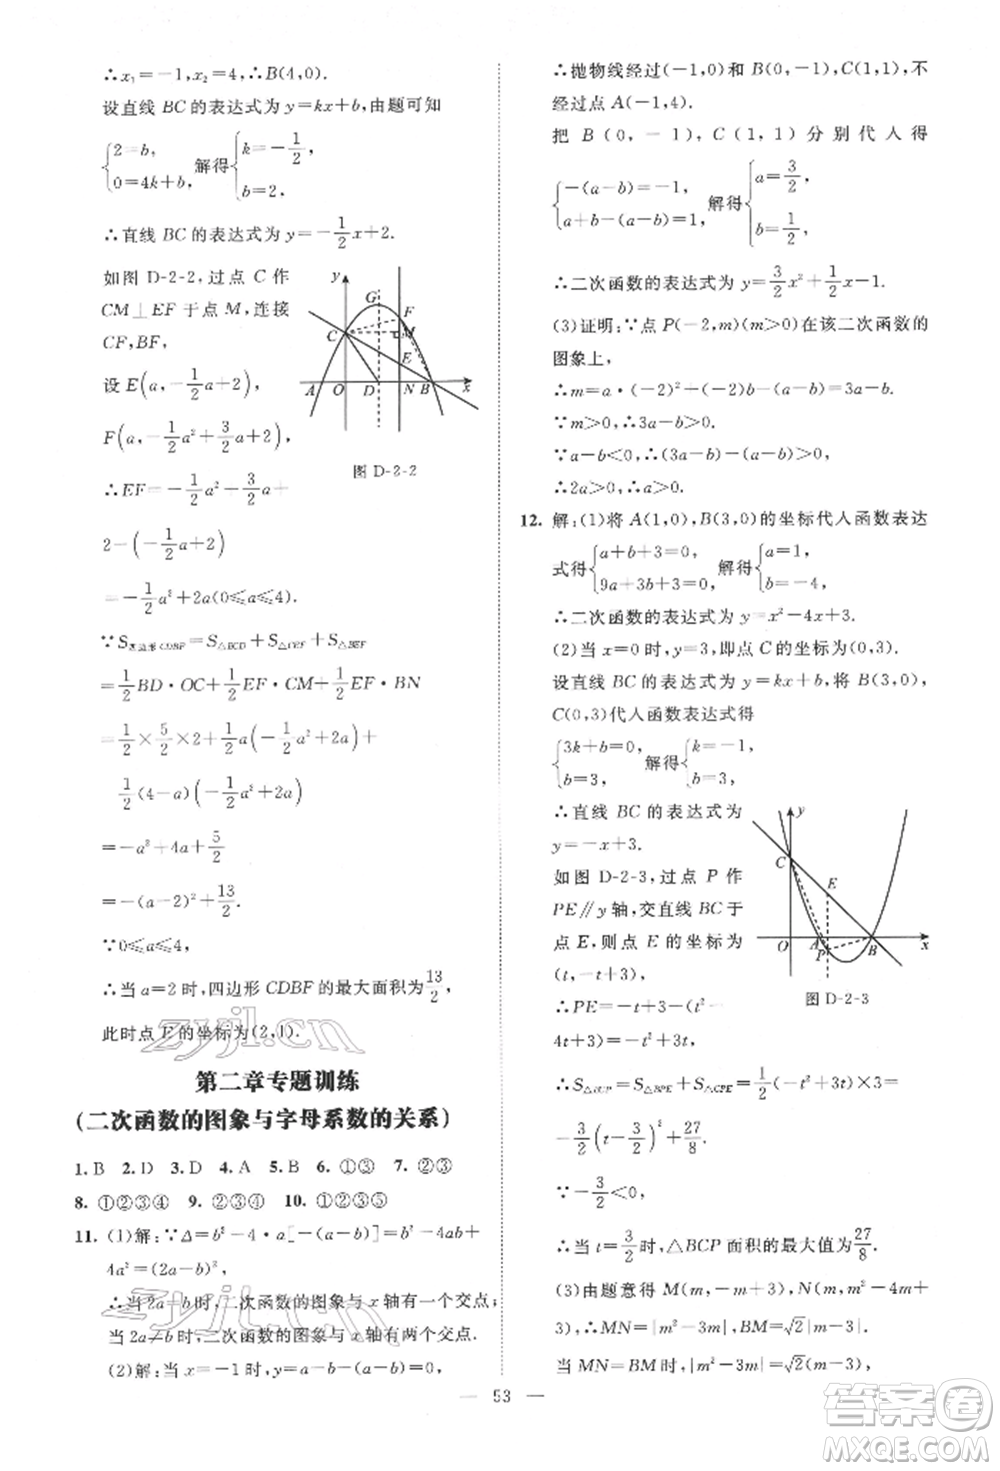 ∴x₁=-1,x₂=4,∴B(4,0).
设直线 BC 的表达式为 y=kx+b,由题可知
{2=b, 0=4k+b, 解得{k=-1/2, b=2.
∴直线 BC 的表达式为 y=-1/2x+2.
如图 D-2-2,过点 C 作
CM⊥EF 于点 M,连接
CF,BF,
设 E(a,-1/2a+2),
F(a,-1/2a²+3/2a+2),
∴EF=-1/2a²+3/2a+
2-(-1/2a+2)
=-1/2a²+2a(0≤a≤4).
∵S四边形CDBF=S△BCD+S△CEF+S△BEF
=1/2BD·OC+1/2EF·CM+1/2EF·BN
=1/2×5/2×2+1/2a(-1/2a²+2a)+
1/2(4-a)(-1/2a²+2a)
=-a²+4a+5/2
=-(a-2)²+13/2,
∵0≤a≤4,
∴当 a=2 时,四边形 CDBF 的最大面积为13/2,
此时点 E 的坐标为(2,1).
y G F C M E A O D N B x
图 D-2-2
第二章专题训练
(二次函数的图象与字母系数的关系)
1. B 2. D 3. D 4. A 5. B 6. ①③ 7. ②③
8. ①②③④ 9. ②③④ 10. ①②③⑤
11. (1)解:∵Δ=b²-4·a[-(a-b)]=b²-4ab+
4a²=(2a-b)²,
∴当 2a=b 时,二次函数的图象与 x 轴有一个交点;
当 2a≠b 时,二次函数的图象与 x 轴有两个交点.
(2)解:当 x=-1 时,y=a-b-(a-b)=0,
∴抛物线经过(-1,0)和 B(0,-1),C(1,1),不
经过点 A(-1,4).
把 B(0,-1),C(1,1)分别代人得
{-(a-b)=-1, a+b-(a-b)=1, 解得{a=3/2, b=1/2,
∴二次函数的表达式为 y=3/2x²+1/2x-1.
(3)证明:∵点 P(-2,m)(m>0)在该二次函数的
图象上,
∴m=a·(-2)²+(-2)b-(a-b)=3a-b.
∵m>0,∴3a-b>0.
∵a-b<0,∴(3a-b)-(a-b)>0,
∴2a>0,∴a>0.
12. 解:(1)将 A(1,0),B(3,0)的坐标代人函数表达
式得{a+b+3=0, 9a+3b+3=0, 解得{a=1, b=-4,
∴二次函数的表达式为 y=x²-4x+3.
(2)当 x=0 时,y=3,即点 C 的坐标为(0,3),
设直线 BC 的表达式为 y=kx+b,将 B(3,0),
C(0,3)代人函数表达式得
{3k+b=0, b=3, 解得{k=-1, b=3,
∴直线 BC 的表达式为
y=-x+3.
如图 D-2-3,过点 P 作
PE∥y 轴,交直线 BC于
点 E,则点 E 的坐标为
(t,-t+3),
y C E O A P B x
图 D-2-3
∴PE=-t+3-(t²-
4t+3)=-t²+3t,
∴S△BCP=S△BPE+S△CPE=1/2(-t²+3t)×3=
-3/2(t-3/2)²+27/8,
∵-3/2<0,
∴当 t=3/2时,△BCP 面积的最大值为27/8.
(3)由题意得 M(m,-m+3),N(m,m²-4m+
3),∴MN=|m²-3m|,BM=√2|m-3|,
当 MN=BM时,|m²-3m|=√2(m-3),
53
zyjl.cn
zyjl.cn
答案圈
MXQE.COM